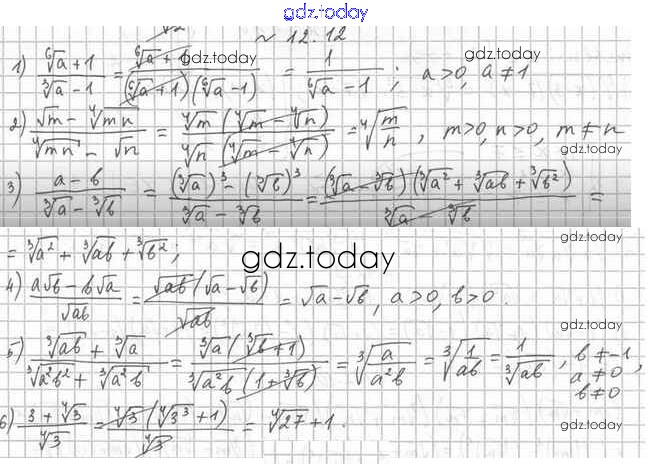 gdz.today
№ 12.12
1) (⁶√a + 1)/(³√a − 1) = (⁶√a + 1)/((⁶√a + 1)(⁶√a − 1)) = 1/(⁶√a − 1); a>0, a≠1
gdz.today
gdz.today
2) (√m − ⁴√mn)/(⁴√mn − √n) = (⁴√m (⁴√m − ⁴√n))/(⁴√n (⁴√m − ⁴√n)) = ⁴√(m/n), m>0, n>0, m≠n
gdz.today
gdz.today
3) (a − b)/(³√a − ³√b) = ((³√a)³ − (³√b)³)/(³√a − ³√b) = ((³√a − ³√b)(³√a² + ³√ab + ³√b²))/(³√a − ³√b) =
= ³√a² + ³√ab + ³√b²;
gdz.today
4) (a√b − b√a)/√ab = (√ab (√a − √b))/√ab = √a − √b, a>0, b>0.
gdz.today
5) (³√ab + ³√a)/(³√a²b² + ³√a²b) = (³√a (³√b + 1))/(³√a²b (1 + ³√b)) = ³√(a/a²b) = ³√(1/ab) = 1/³√ab, b≠−1, a≠0, b≠0
6) (3 + ⁴√3)/⁴√3 = (⁴√3 (⁴√3³ + 1))/⁴√3 = ⁴√27 + 1.
gdz.today
gdz.today